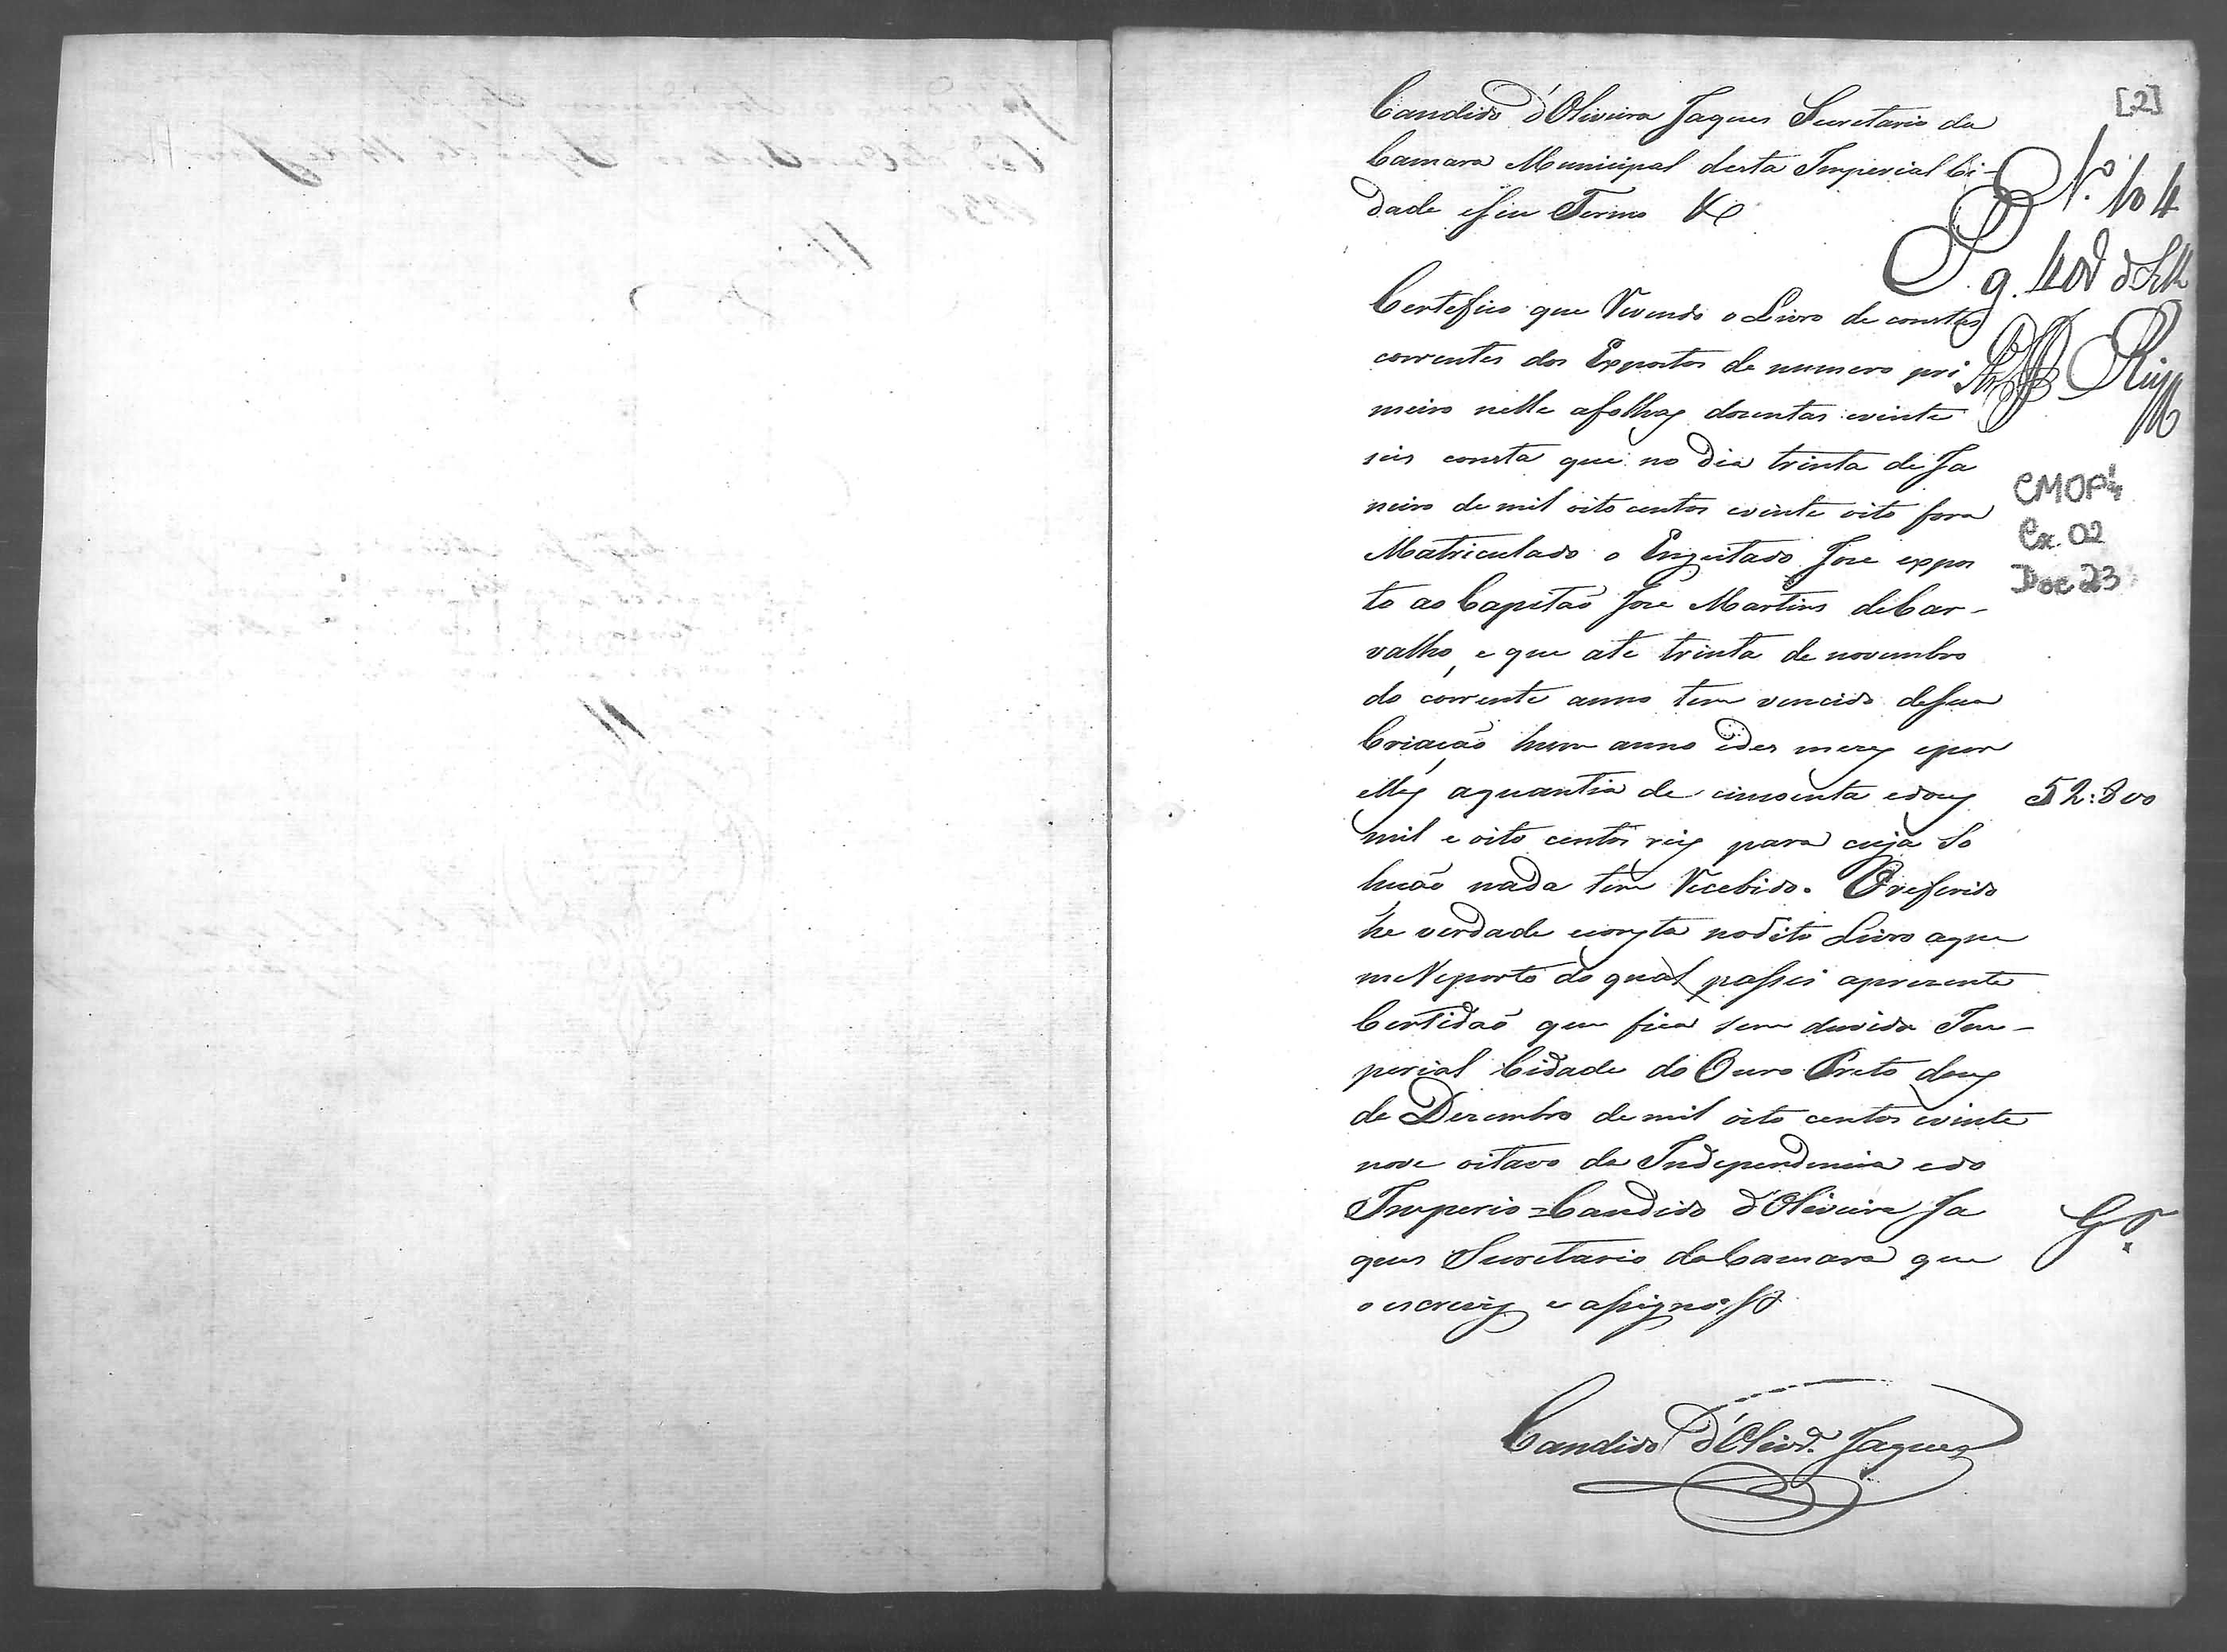 [2]
Candido d'Oliveira Jaques Secretario da
Camara Municipal desta Imperial Ci-
dade eseu Termo &
N.º 104
Pg.
Certefico que Revendo o Livro de contas
correntes dos Expostos de numero pri
meiro nelle afolhas dozentas evinte
seis consta que no dia trinta de Ja
neiro de mil oito centos evinte oito fora
Matriculado o Engeitado Jose expos
to ao Capitaõ Jose Martins deCar-
valho, e que até trinta de novembro
do corrente anno tem vencido desua
Criaçaõ hum anno edes mezes epor
elles aquantia de cincoenta edous
mil e oito centos reis para cuja So
luçaõ nada tem Recebido. Oreferido
he verdade econsta nodito Livro aque
meReporto do qual passei aprezente
Certidaõ que fica sem duvida Im-
perial Cidade do Ouro Preto dous
de Dezembro de mil oito centos evinte
nove oitavo da Independencia edo
Imperio = Candido d'Oliveira Ja
ques Secretario daCamara que
o escrevy e assignei
52:800
CMOP
Cx. 02
Doc 23
Candido d'Olivr.ª Jaques